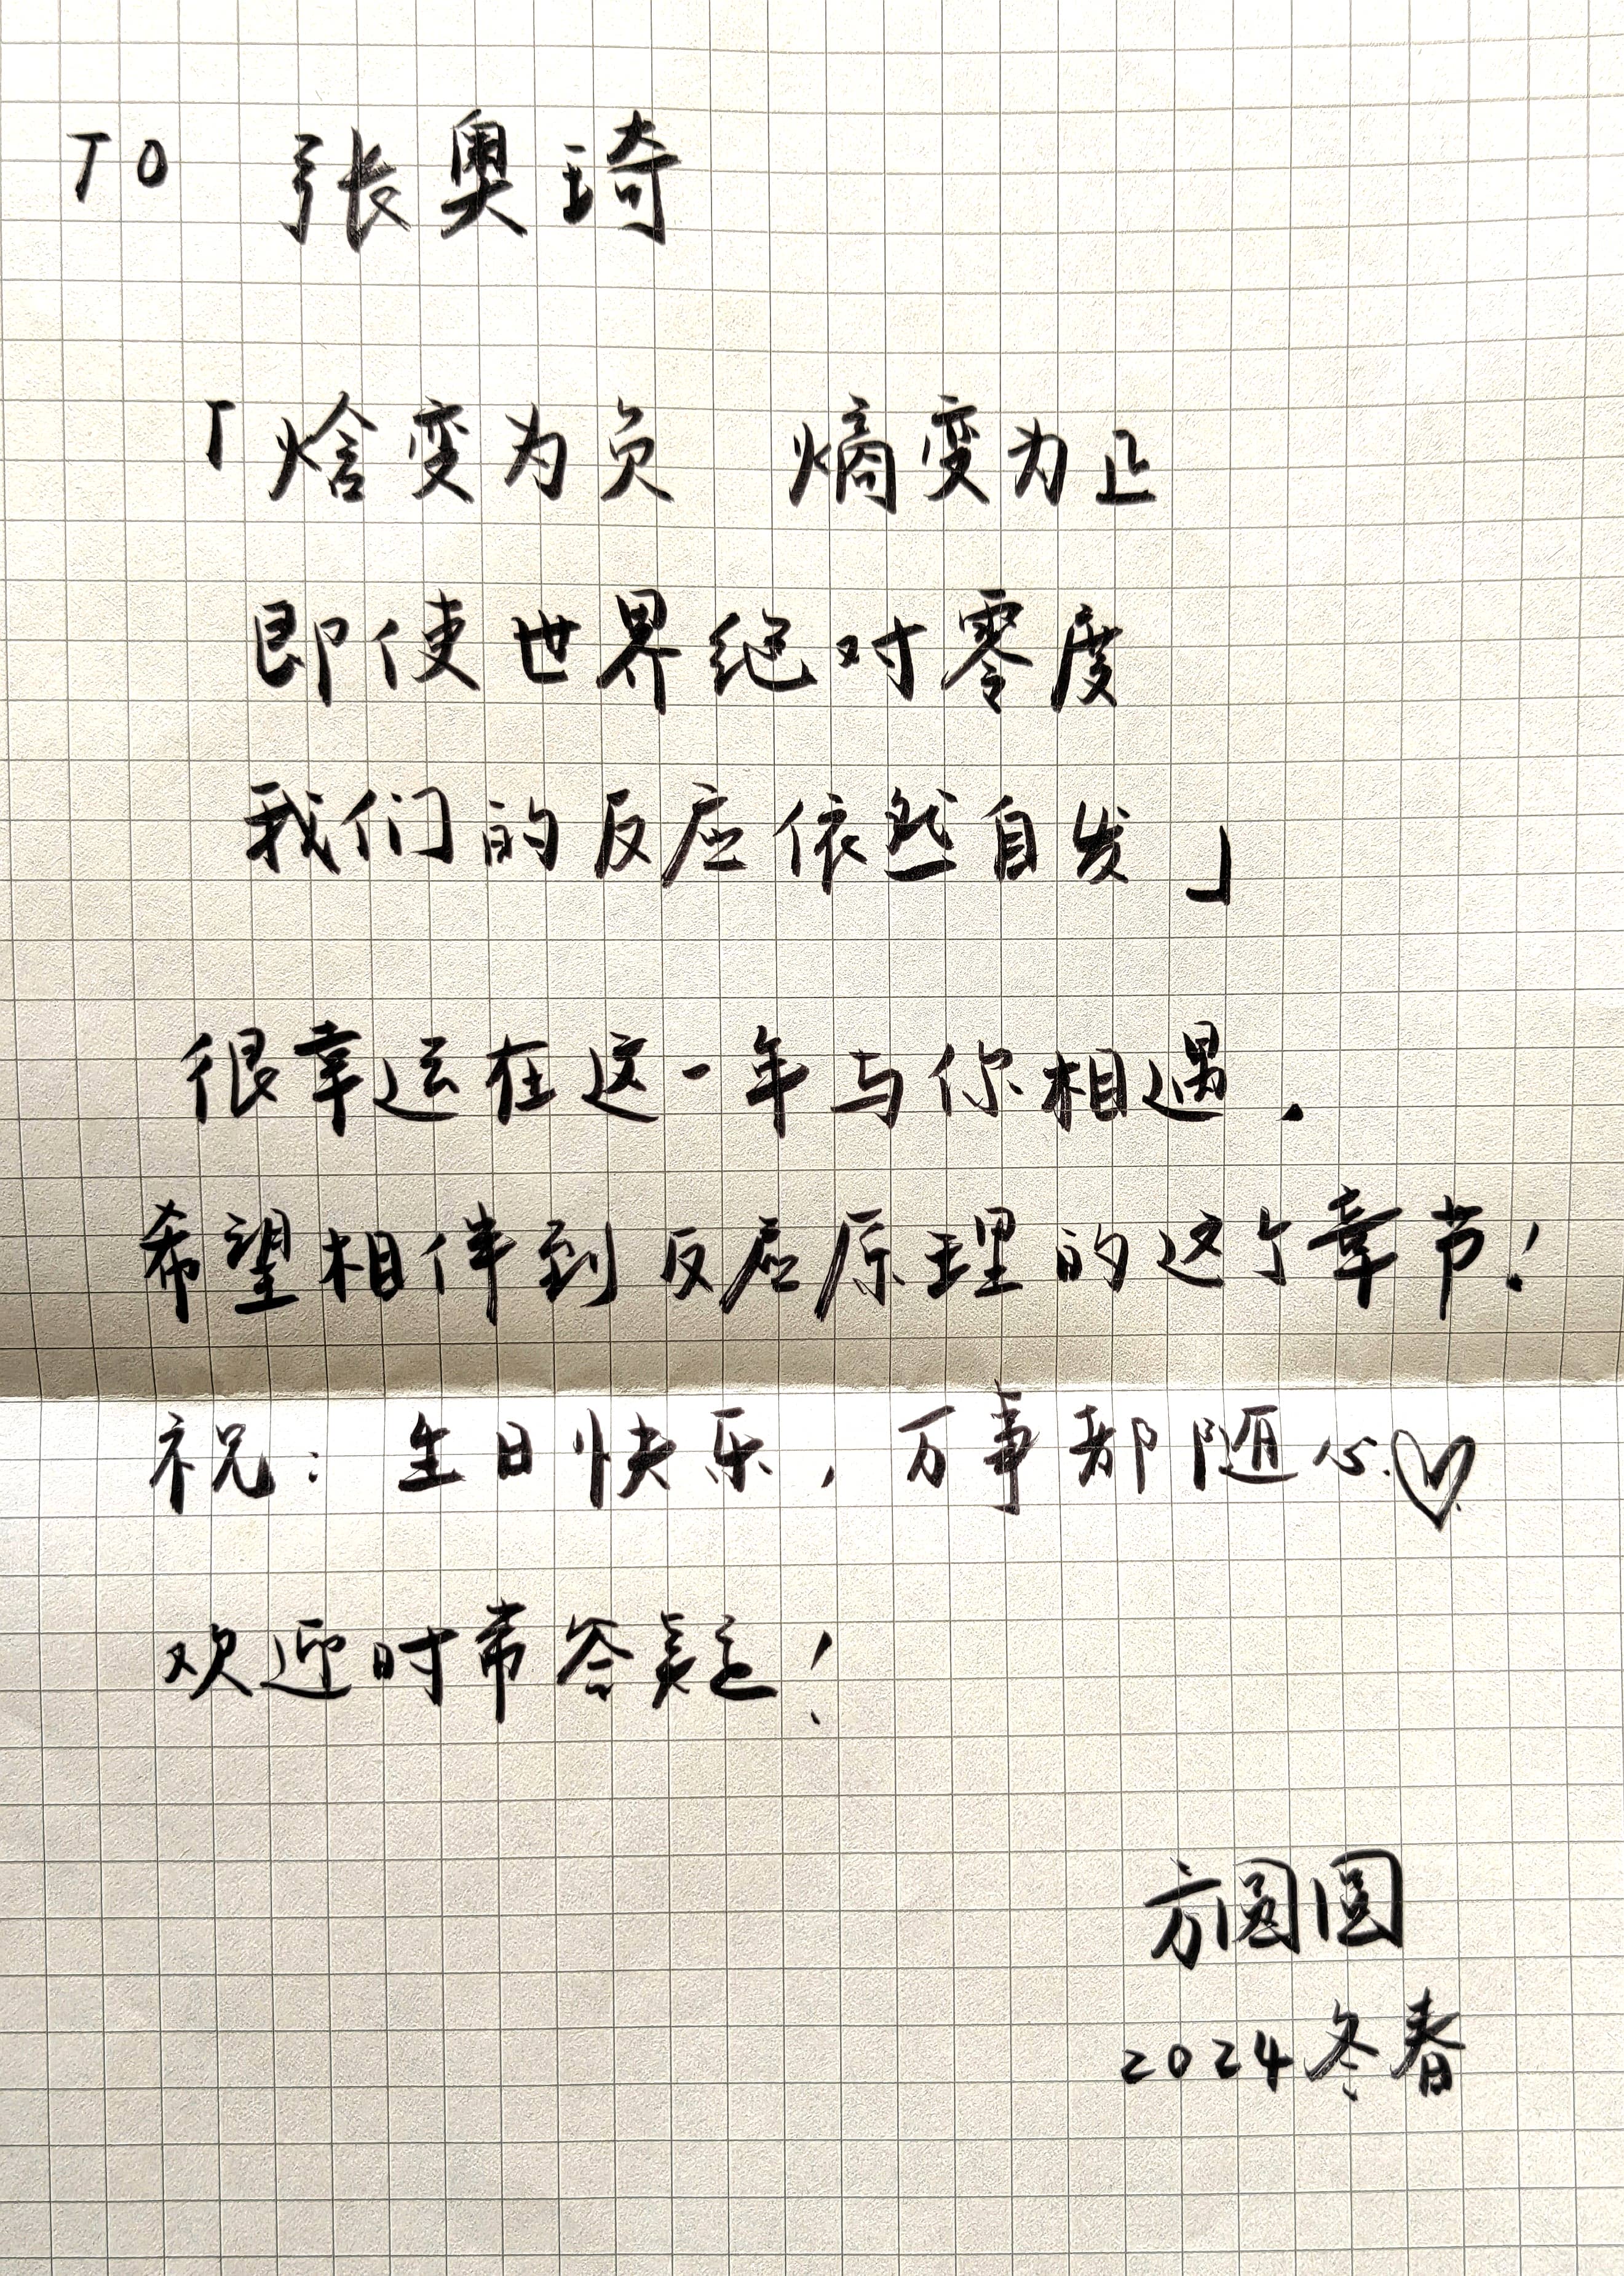 TO 张奥琦
「焓变为负 熵变为正
即使世界绝对零度
我们的反应依然自发」
很幸运在这一年与你相遇.
希望相伴到反应原理的这个章节!
祝: 生日快乐, 万事都随心♡
欢迎时常答疑!
方圆圆
2024冬春